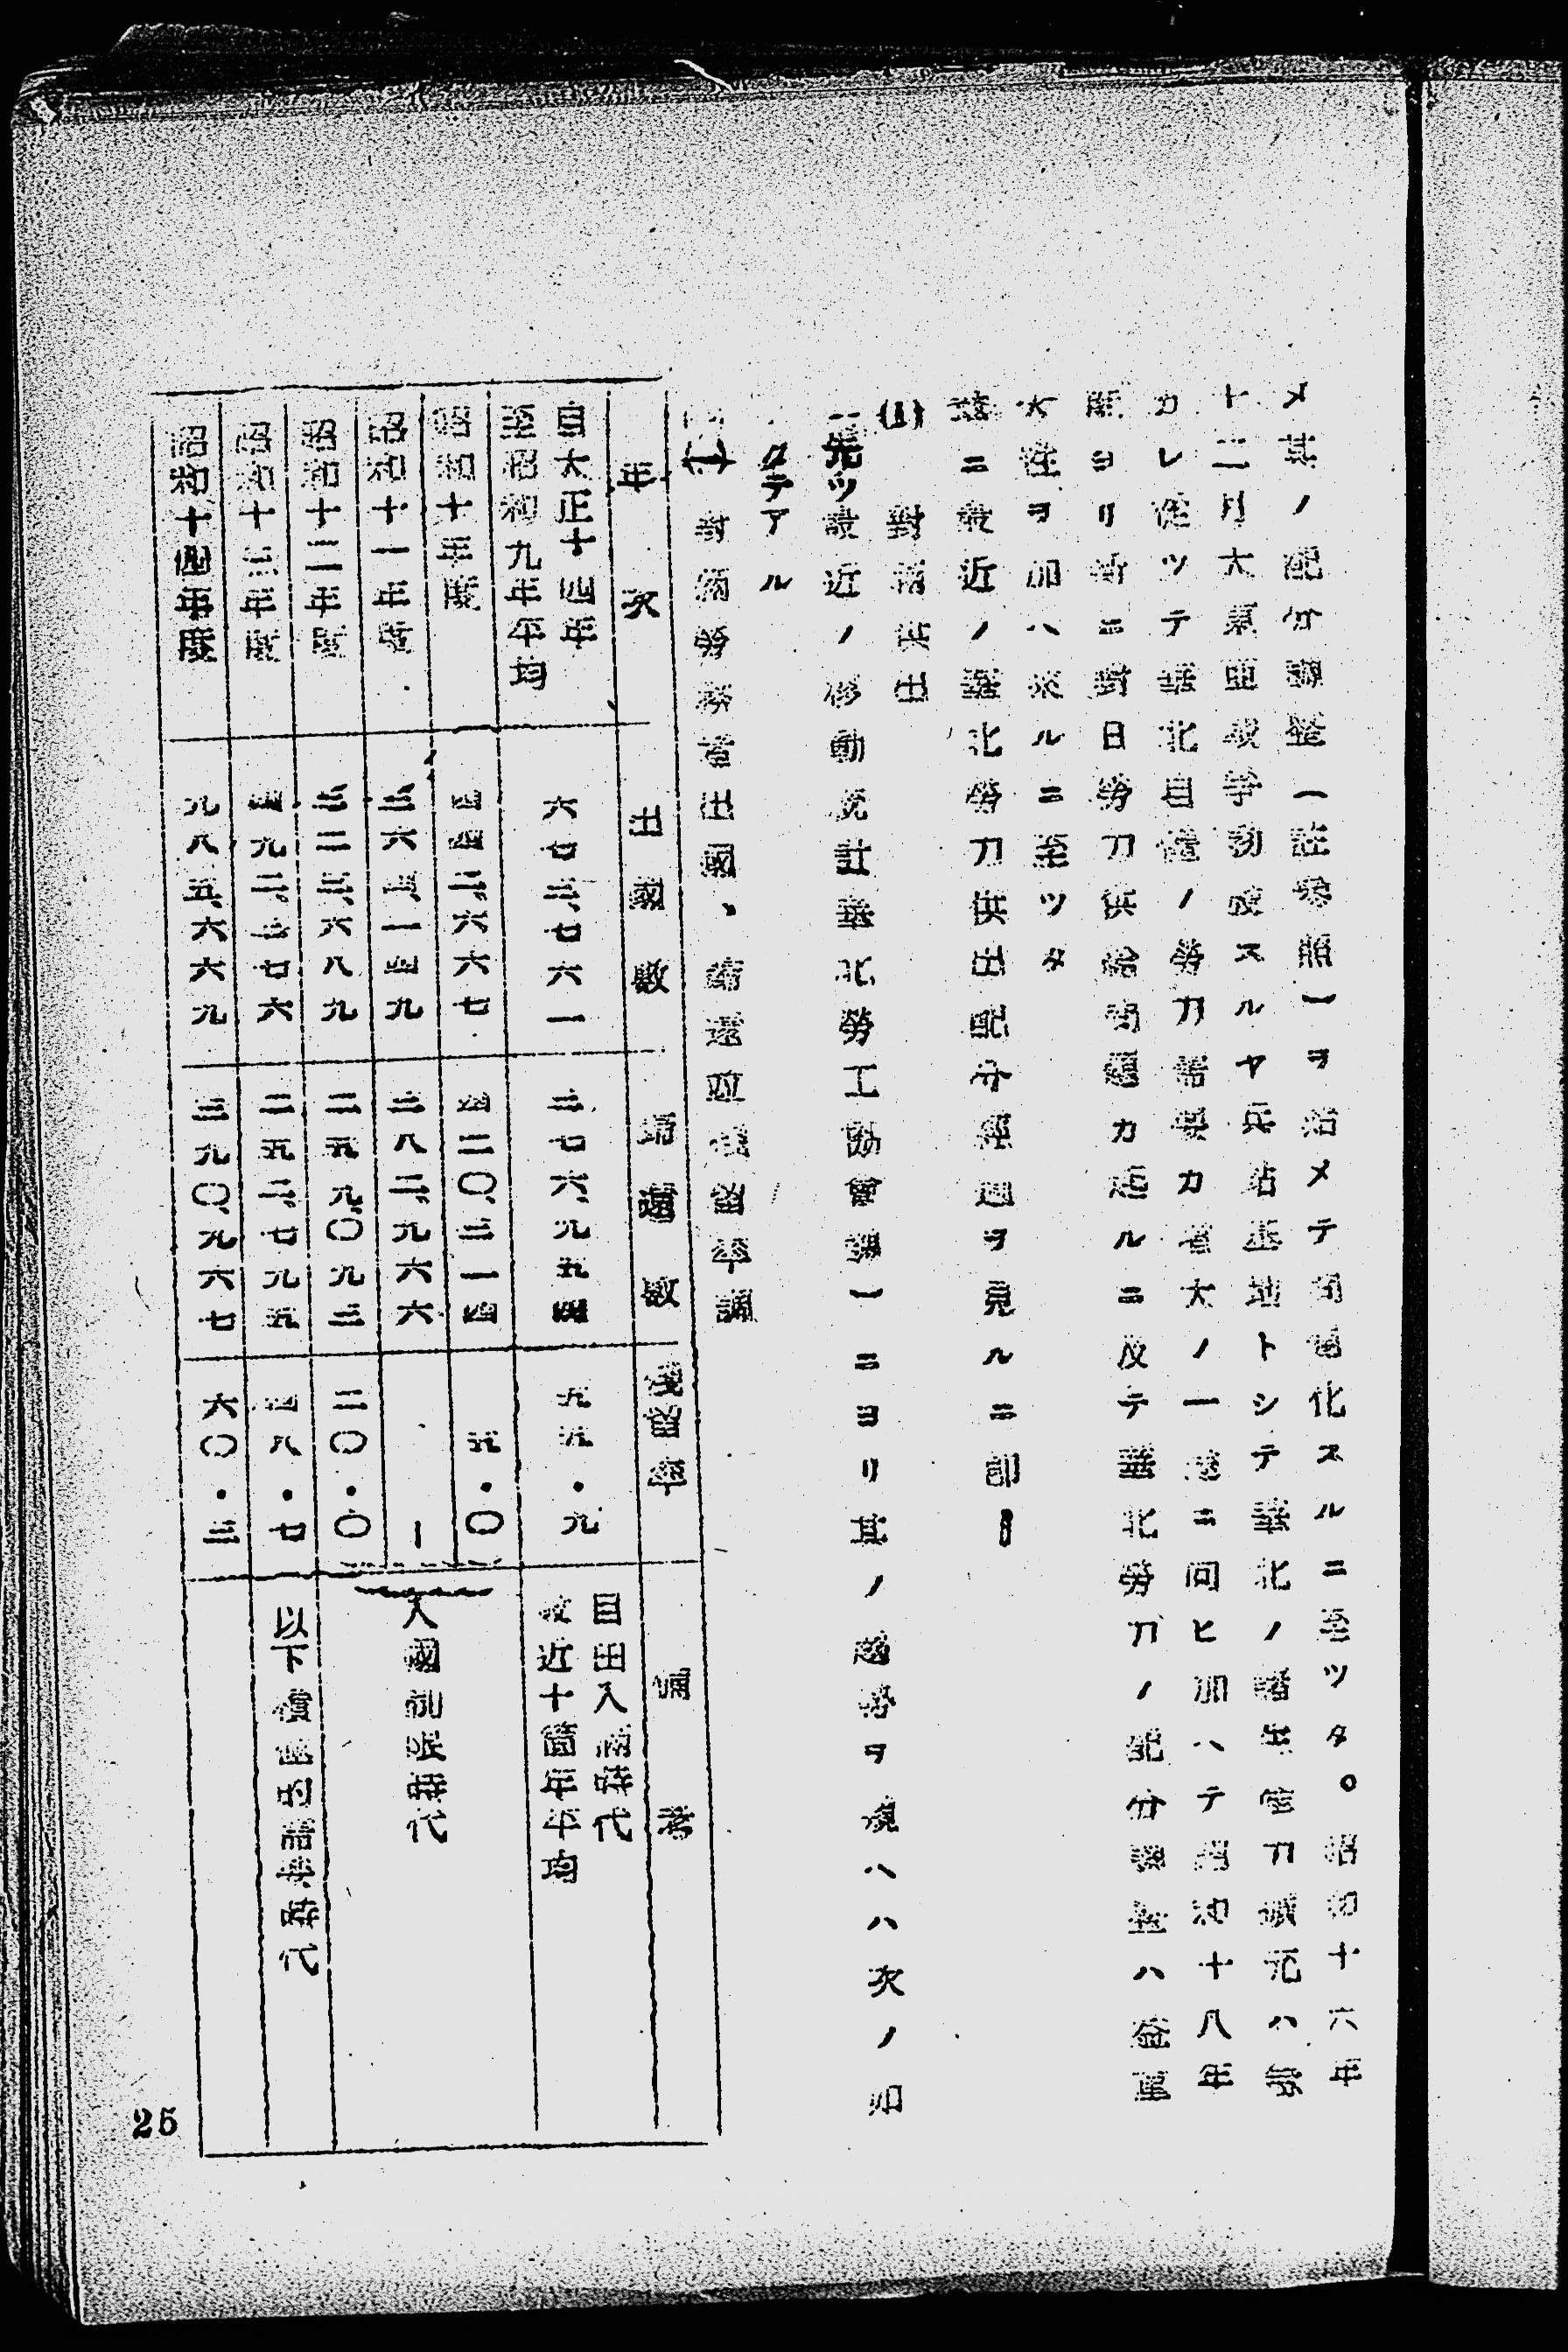 メ其ノ配分調整(註參照)ヲ始メテ問題化スルニ至ツタ。昭和十六年
十二月大東亞戰爭勃發スルヤ兵站基地トシテ華北ノ諸生産力擴充ハ急
カレ從ツテ華北自體ノ勞力需要カ著大ノ一途ニ向ヒ加ハテ昭和十八年
頭ヨリ新ニ對日勞力供給問題カ起ルニ及テ華北勞力ノ配分調整ハ益重
大性ヲ加ハ來ルニ至ツタ
茲ニ最近ノ華北勞力供出配分經過ヲ見ルニ卽━
(1) 對滿供出
先ツ最近ノ移動統計華北勞工協會調一ニヨリ其ノ趨勢ヲ窺ヘハ次ノ如
クテアル
(一)對滿勞務者出國、歸還竝殘留率調
年次 出國數 歸還數 殘留率 備考
自大正十四年
至昭和九年年均 六七三、七六一 三七六、九五四 九九・九 自由入滿時代
最近十箇年平均
昭和十年度 四四二、六六七 四二〇、三一四 五・〇
昭和十一年度 三六四、一四九 三八二、九六六 ー 入國制限時代
昭和十二年度 三二三、六八九 二五九、〇九三 二〇・〇
昭和十三年度 四九二、三七六 二五二、七九五 四八・七 以下積極的招集時代
昭和十四年度 九八五、六六九 三九〇、九六七 六〇・三
25